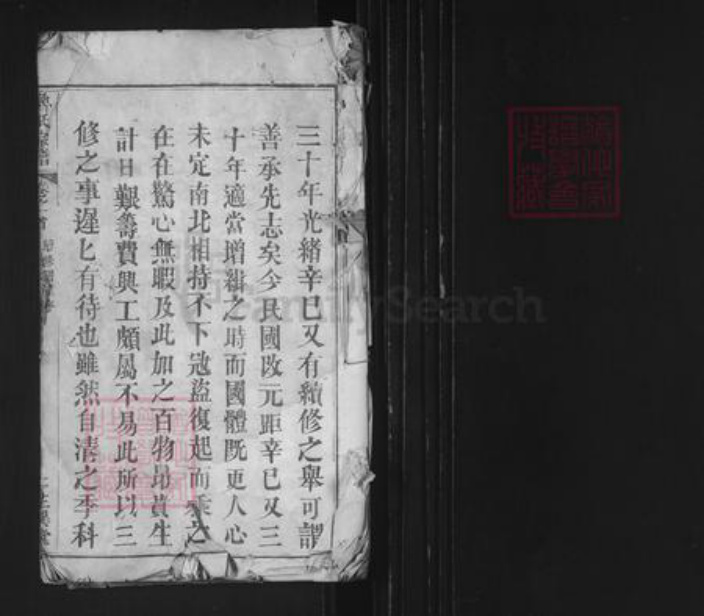 三十年光緒辛巳又有續修之舉可謂
善承先志矣今民國改元距辛巳又三
十年適當增緝之時而國體既更人心
未定南北相持不下冦盜復起而乘之
在在驚心無暇及此加之百物昂貴生
計日艱籌費興工頗屬不易此所以三
修之事遲匕有待也雖然自清之季科
FamilySearch